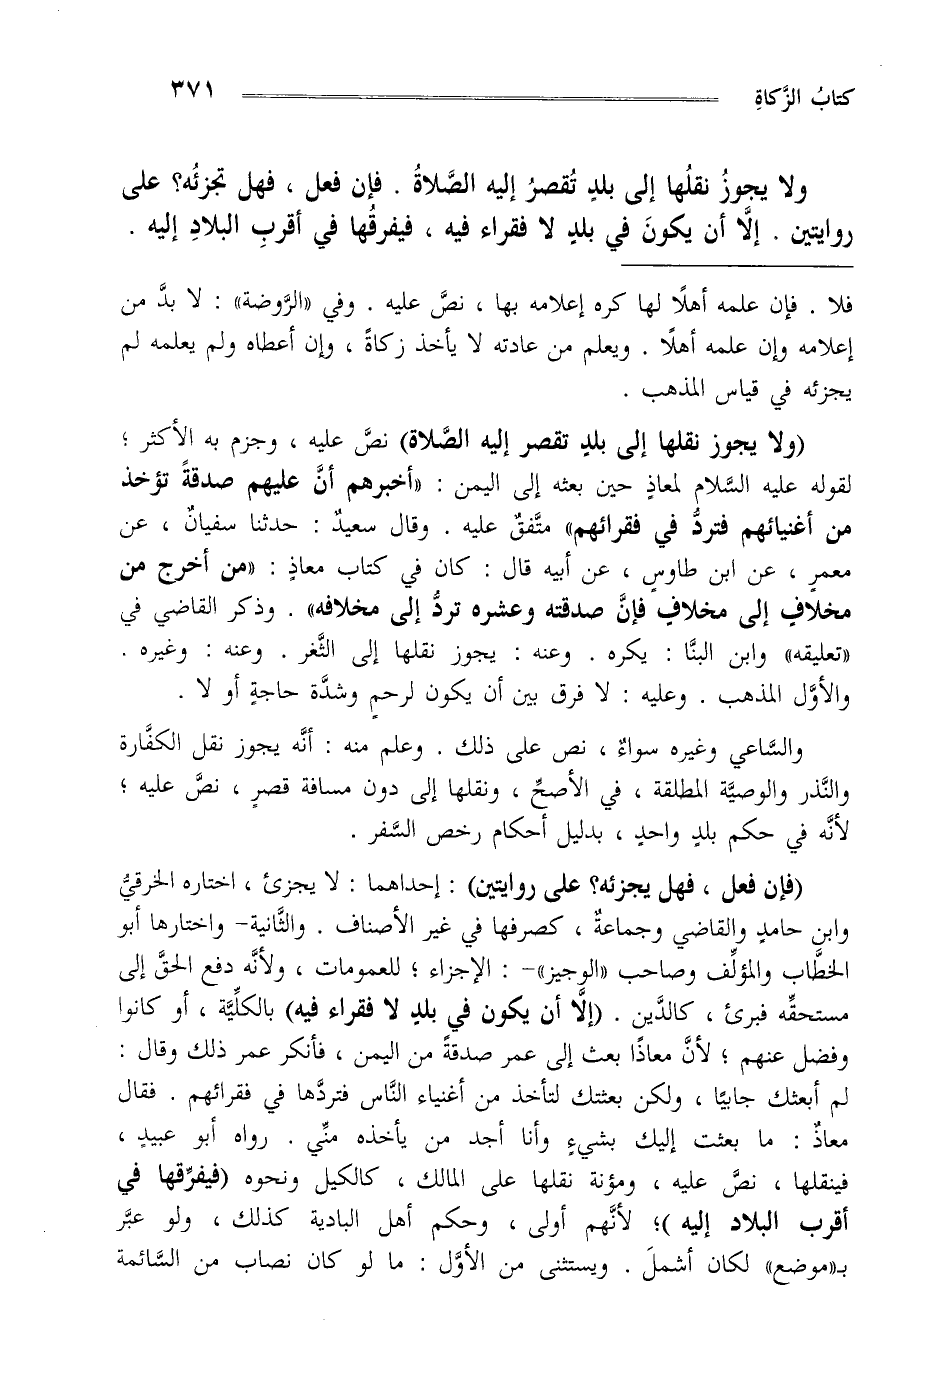 كتابُ الزَّكاةِ ٣٧١
ولا يجوزُ نقلُها إلى بلدٍ تُقصرُ إليه الصَّلاةُ . فإن فعل ، فهل تجزئُه؟ على
روايتين . إلَّا أن يكونَ في بلدٍ لا فقراء فيه ، فيفرقُها في أقربِ البلادِ إليه .
فلا . فإن علمه أهلًا لها كره إعلامه بها ، نصَّ عليه . وفي «الرَّوضة» : لا بدَّ من
إعلامه وإن علمه أهلًا . ويعلم من عادته لا يأخذ زكاةً ، وإن أعطاه ولم يعلمه لم
يجزئه في قياس المذهب .
(ولا يجوز نقلها إلى بلدٍ تقصر إليه الصَّلاة) نصَّ عليه ، وجزم به الأكثر ؛
لقوله عليه السَّلام لمعاذٍ حين بعثه إلى اليمن : «أخبرهم أنَّ عليهم صدقةً تؤخذ
من أغنيائهم فتردُّ في فقرائهم» متَّفقٌ عليه . وقال سعيدٌ : حدثنا سفيانٌ ، عن
معمرٍ ، عن ابن طاوسٍ ، عن أبيه قال : كان في كتاب معاذٍ : «من أخرج من
مخلافٍ إلى مخلافٍ فإنَّ صدقته وعشره تردُّ إلى مخلافه» . وذكر القاضي في
«تعليقه» وابن البنَّا : يكره . وعنه : يجوز نقلها إلى الثَّغر . وعنه : وغيره .
والأوَّل المذهب . وعليه : لا فرق بين أن يكون لرحمٍ وشدَّة حاجةٍ أو لا .
والسَّاعي وغيره سواءٌ ، نص على ذلك . وعلم منه : أنَّه يجوز نقل الكفَّارة
والنَّذر والوصيَّة المطلقة ، في الأصحِّ ، ونقلها إلى دون مسافة قصرٍ ، نصَّ عليه ؛
لأنَّه في حكم بلدٍ واحدٍ ، بدليل أحكام رخص السَّفر .
(فإن فعل ، فهل يجزئه؟ على روايتين) : إحداهما : لا يجزئ ، اختاره الخرقيُّ
وابن حامدٍ والقاضي وجماعةٌ ، كصرفها في غير الأصناف . والثَّانية- واختارها أبو
الخطَّاب والمؤلِّف وصاحب «الوجيز»- : الإجزاء ؛ للعمومات ، ولأنَّه دفع الحقَّ إلى
مستحقِّه فبرئ ، كالدَّين . (إلَّا أن يكون في بلدٍ لا فقراء فيه) بالكلِّيَّة ، أو كانوا
وفضل عنهم ؛ لأنَّ معاذًا بعث إلى عمر صدقةً من اليمن ، فأنكر عمر ذلك وقال :
لم أبعثك جابيًا ، ولكن بعثتك لتأخذ من أغنياء النَّاس فتردَّها في فقرائهم . فقال
معاذٌ : ما بعثت إليك بشيءٍ وأنا أجد من يأخذه منِّي . رواه أبو عبيدٍ ،
فينقلها ، نصَّ عليه ، ومؤنة نقلها على المالك ، كالكيل ونحوه (فيفرِّقها في
أقرب البلاد إليه )؛ لأنَّهم أولى ، وحكم أهل البادية كذلك ، ولو عبَّر
بـ«موضع» لكان أشملَ . ويستثنى من الأوَّل : ما لو كان نصاب من السَّائمة